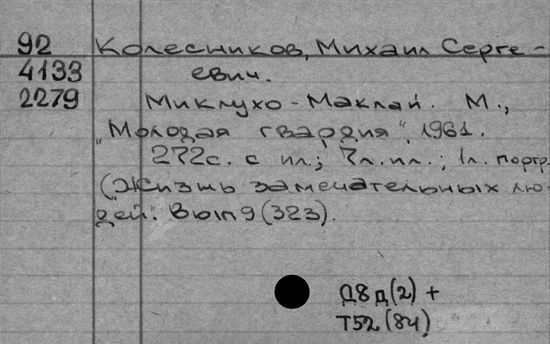 92 Колесников, Михаил Серге-
4133 евич.
2279 Миклухо-Маклай. М.,
"Молодая гвардия", 1961.
272с. с ил.; 7л.ил.; 1л. портр.
(Жизнь замечательных лю-
дей. Вып 9 (323).
Д8д(2) +
Т52(84)